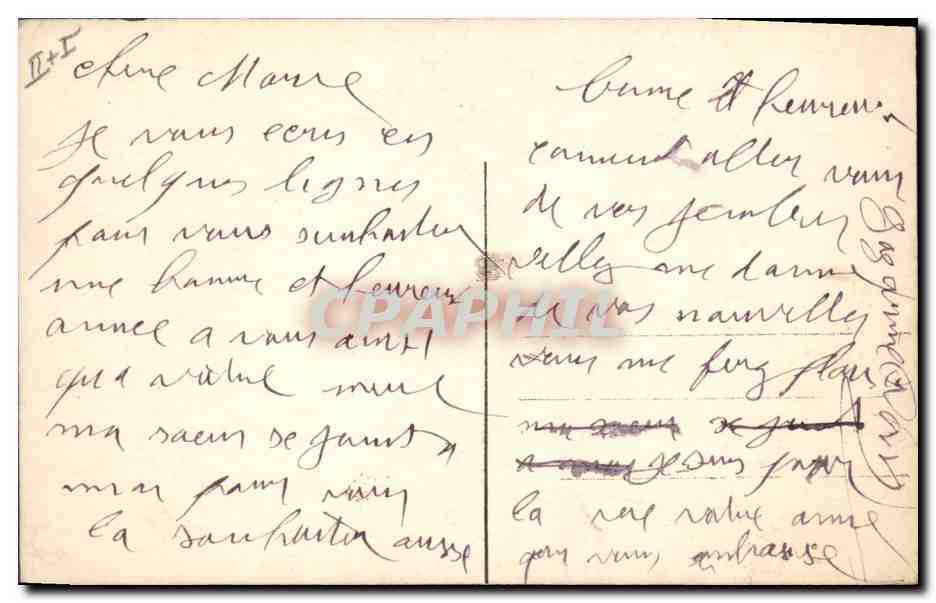 II+I
chere Marie
je vous ecris ces
quelques lignes
pour vous souhaiter
une bonne et heureuse
annee a vous ainsi
qu a votre
ma soeur se joint a
moi pour vous
la souhaiter aussi
bonne et heureuse
coment aller vous
de vos
veller me donne
de vos nouvelles
vous me ferez plai
ma soeur se joint
a je suis pour
la vie votre amie
qui vous enbrasse
CPARPHIL